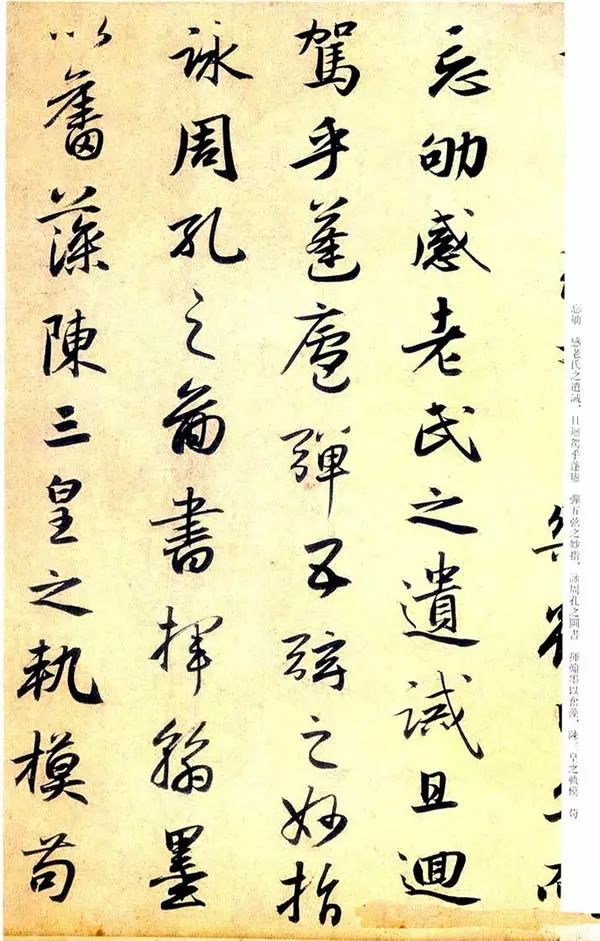 忘劬 感老氏之遺誡、且迴駕乎蓬廬 彈五弦之妙指、詠周孔之圖書 揮翰墨以奮藻、陳三皇之軌模 苟
忘劬感老氏之遺誡且迴
駕乎蓬廬彈五弦之妙指
詠周孔之啚書揮翰墨
以奮藻陳三皇之軌模苟